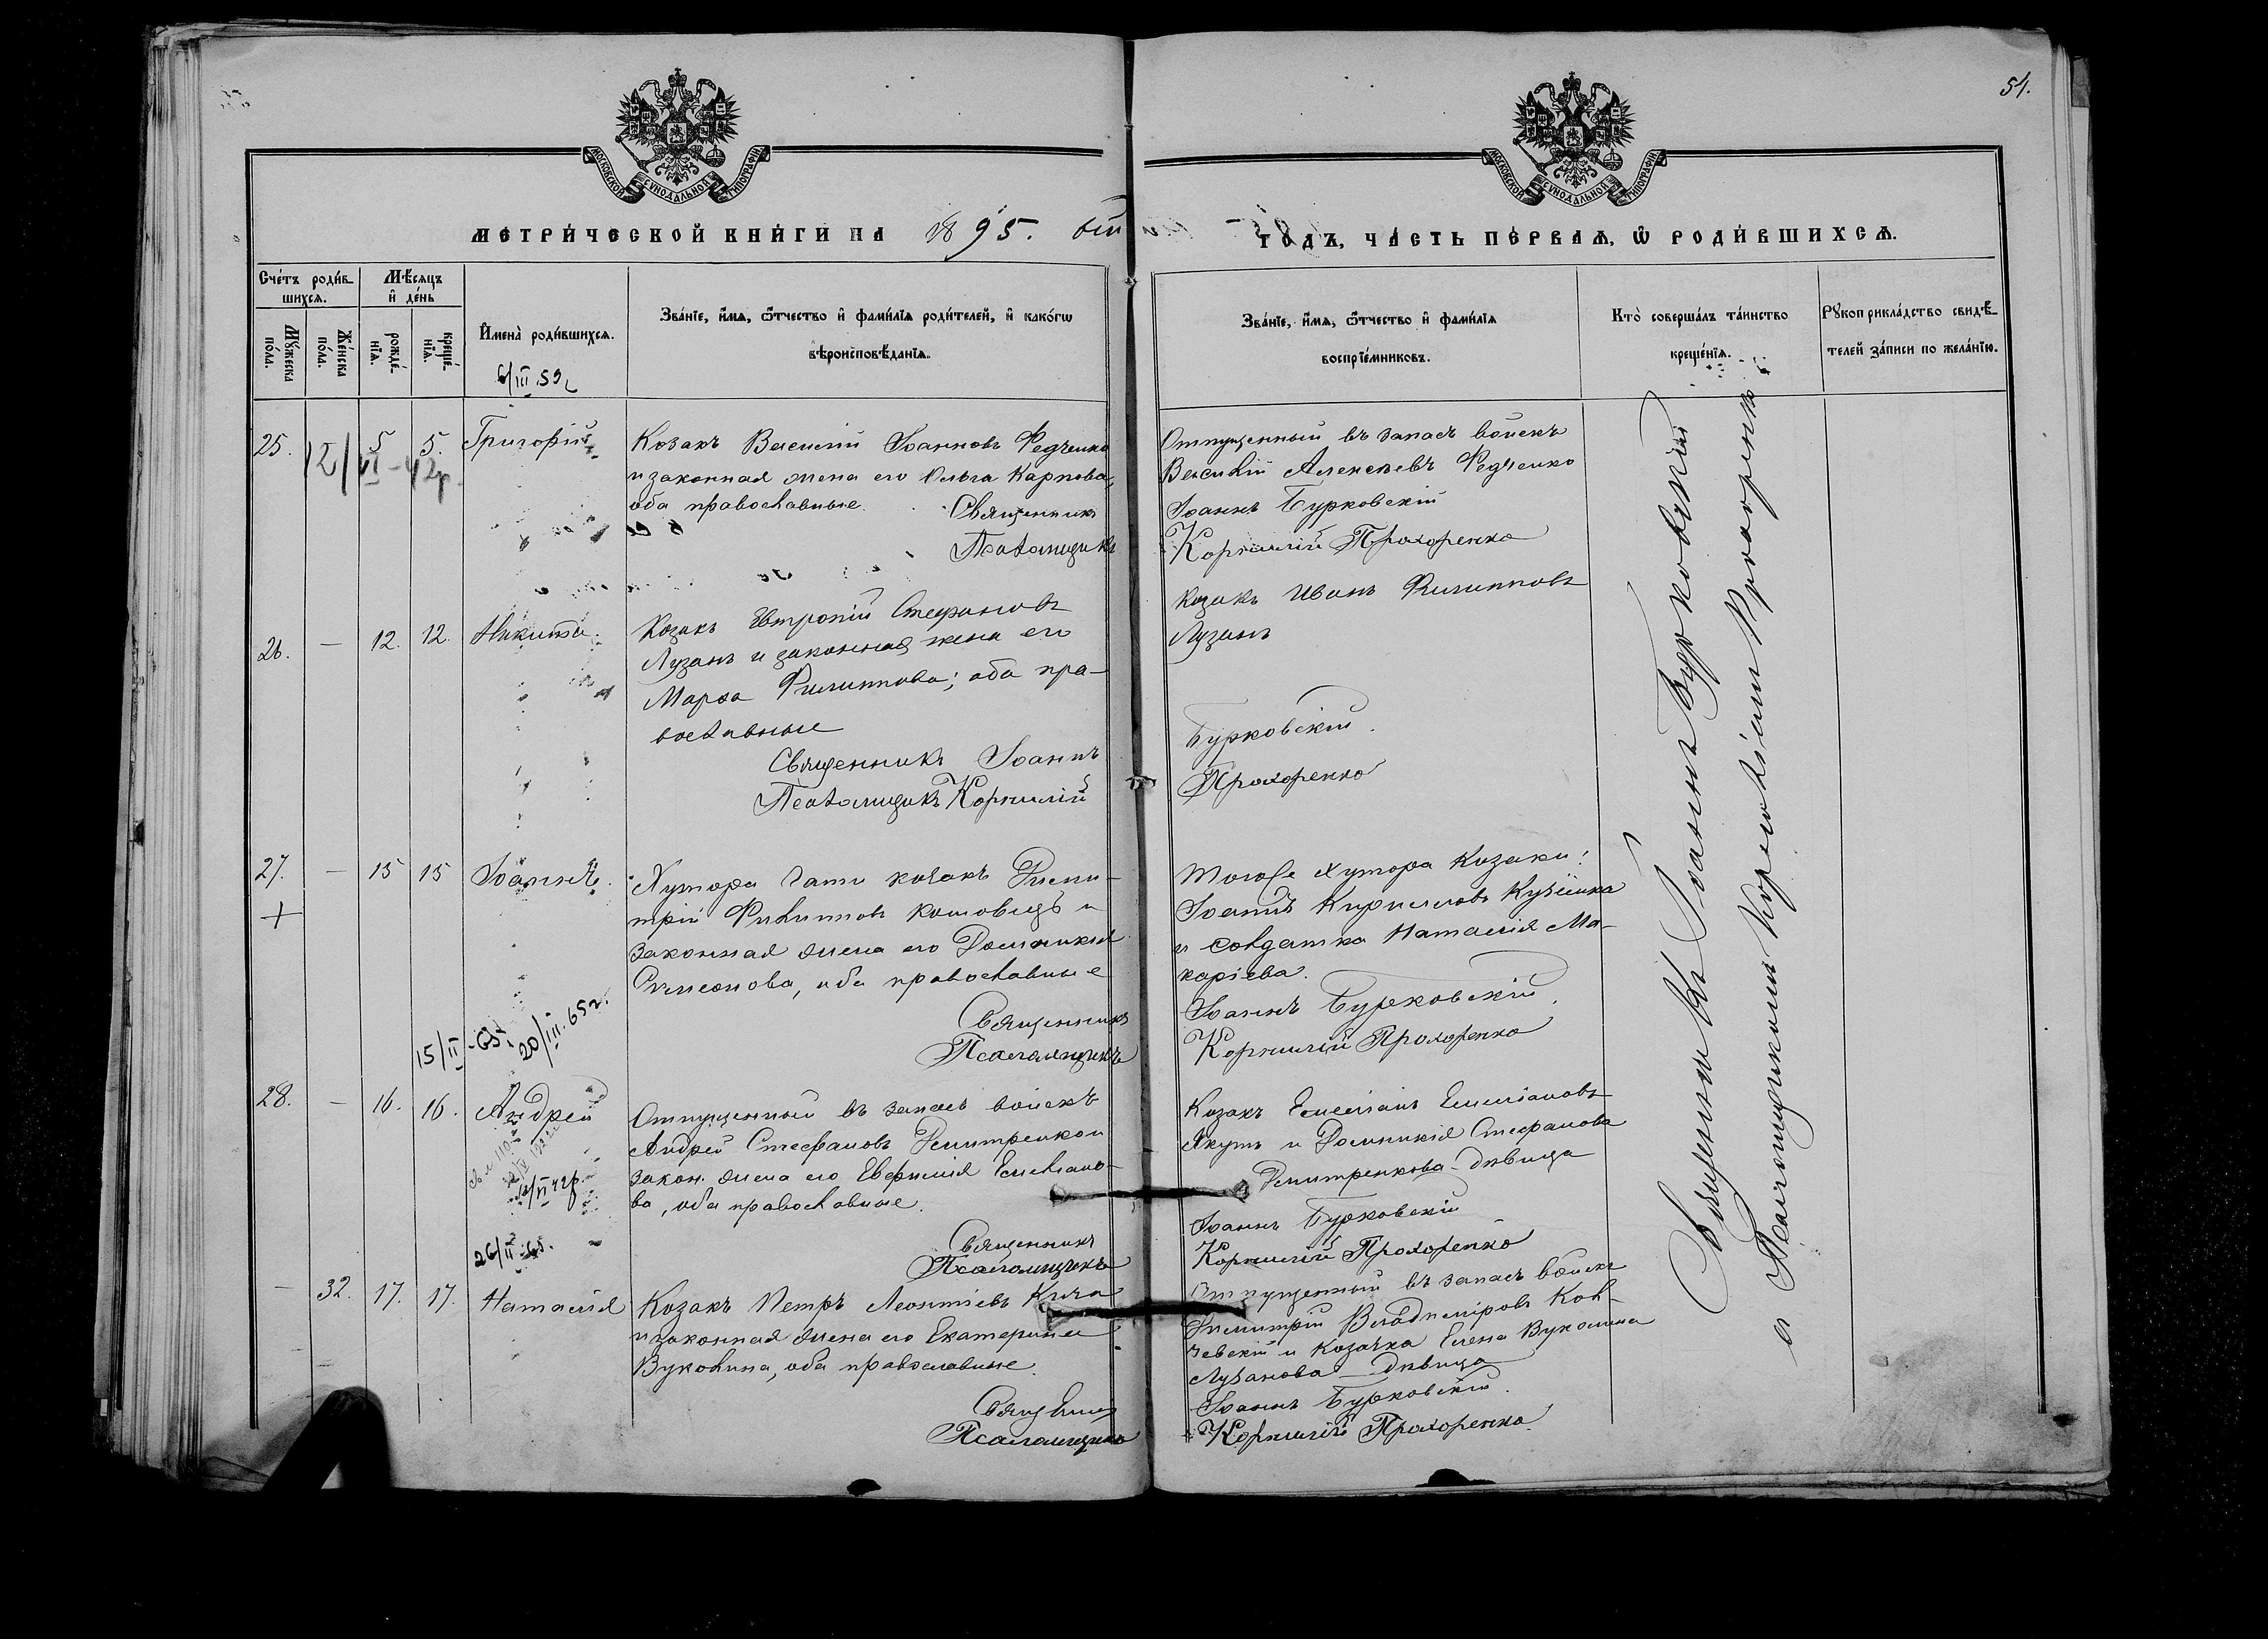 51.
МОСКОВСКОЙ СУНОДАЛЬНОЙ ТИПОГРАФІИ
МОСКОВСКОЙ СУНОДАЛЬНОЙ ТИПОГРАФІИ
МЕТРИ́ЧЕСКОЙ КНИ́ГИ НА 1895.
ГОДЪ, ЧА́СТЬ ПЕ́РВАѦ, Ѽ РОДИ́ВШИХСѦ.
Сче́тъ роди́вшихсѧ.
Мꙋ́жеска по́ла.
Же́нска по́ла.
Мѣ́сяцъ и҆ де́нь
рожде́нїѧ.
креще́нїѧ.
И҆мена̀ роди́вшихсѧ.
Зва́нїе, и҆́мѧ, ѻ҆́тчество и҆ фами́лїѧ роди́телей, и҆ како́гѡ
вѣроисповѣ́данїѧ.
Зва́нїе, и҆́мѧ, ѻ҆́тчество и҆ фами́лїѧ
воспрїе́мниковъ.
Кто̀ соверша́лъ та́инство
креще́нїѧ.
Рꙋкоприкла́дство свидѣ́-
телей за́писи по жела́нїю.
6/III.59г
25. 5 5. Григорій
12/VI-42р.
Козакъ Василій Іоанновъ Редченко
и законная жена его Ольга Карпова,
оба православные.
Священникъ
Псаломщикъ
Отпущенный въ запасъ войскъ
Василій Алексѣевъ Редченко
Іоаннъ Бурковскій
Корнилій Прохоренко
26. — 12. 12. Никита.
Козакъ Евтропій Стефановъ
Лузанъ и законная жена его
Марѳа Филиппова; оба пра-
вославные
Священникъ Іоаннъ
Псаломщикъ Корнилій
козакъ Иванъ Филипповъ
Лузанъ
Бурковскій.
Прохоренко
27. — 15 15 Іоаннъ.
+
Хутора Гати козакъ Дими-
трій Филипповъ Кошовецъ и
законная жена его Домникія
Симеонова, оба православные
Священникъ
Псаломщикъ
Того же хутора козаки:
Іоаннъ Кирилловъ
и солдатка Наталія Ма-
каріева.
Іоаннъ Бурковскій.
Корнилій Прохоренко
15/II-65г. 20/III.65г.
28. — 16. 16. Андрей
12/VI 42р.
26/II-65.
Отпущенный въ запасъ войскъ
Андрей Стефановъ Демитренко и
закон. жена его Евфимія Емельяно-
ва, оба православные.
Священникъ
Псаломщикъ
Козакъ Емеліанъ Емеліановъ
Якутъ и Домникія Стефанова
Демитренкова - дѣвица
Іоаннъ Бурковскій
Корнилій Прохоренко
— 32. 17. 17. Наталія
Козакъ Петръ Леонтіевъ
и законная жена его Екатерина
Вуколина, оба православные.
Псаломщикъ
Отпущенный въ запасъ войскъ
Димитрій Владиміровъ Ков-
чевскій и козачка Елена Вуколина
Лузанова - дѣвица
Іоаннъ Бурковскій.
Корнилій Прохоренко.
Священникъ Іоаннъ Бурковскій
и Псаломщикъ Корнилій Прохоренко